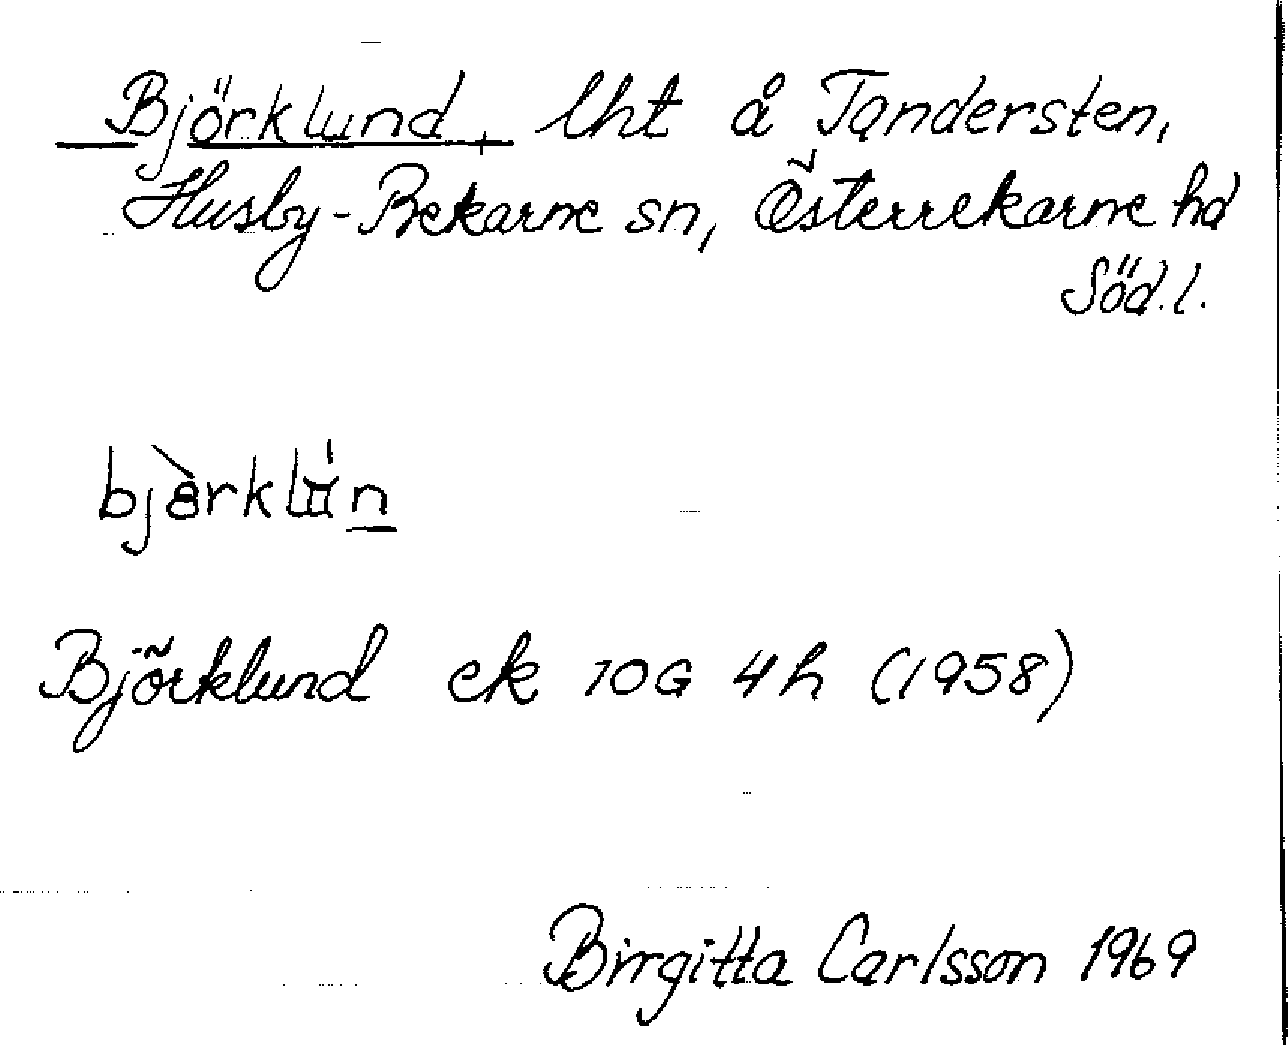 Björklund, lht å Tandersten,
Husby-Rekarne sn, Österrekarne hd
Söd.l.
Björklund ek 10G 4h (1958)
Birgitta Carlsson 1969